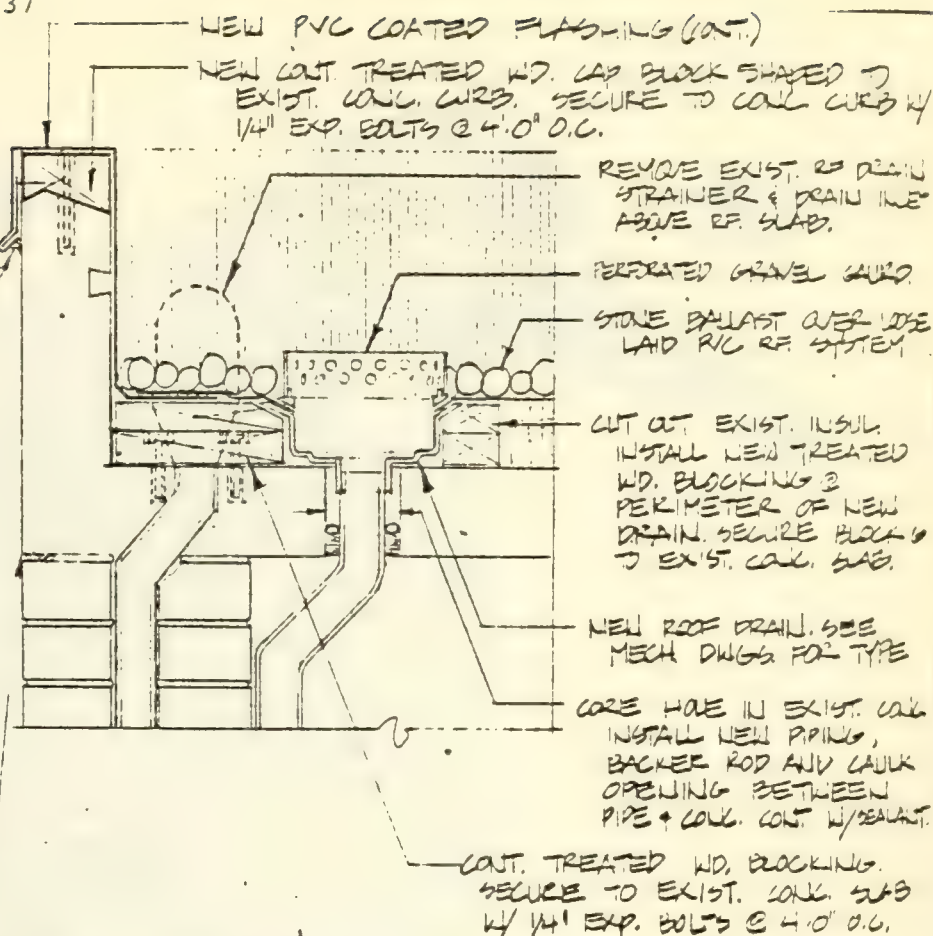 37
NEW PVC COATED FLASHING (CONT.)
NEW CONT. TREATED WD. CAP BLOCK SHAPED TO
EXIST. CONC. CURB. SECURE TO CONC CURB W/
1/4" EXP. BOLTS @ 4'.0" O.C.
REMOVE EXIST. RF DRAIN
STRAINER & DRAIN LINE
ABOVE RF. SLAB.
PERFORATED GRAVEL GAURD.
STONE BALLAST OVER LOOSE
LAID PVC RF. SYSTEM
CUT OUT EXIST. INSUL.
INSTALL NEW TREATED
WD. BLOCKING @
PERIMETER OF NEW
DRAIN. SECURE BLOCK'G
TO EXIST. CONC. SLAB.
NEW ROOF DRAIN. SEE
MECH DWGS. FOR TYPE
CORE HOLE IN EXIST. CONC
INSTALL NEW PIPING,
BACKER ROD AND CAULK
OPENING BETWEEN
PIPE & CONC. CONT W/SEALANT.
CONT. TREATED WD. BLOCKING.
SECURE TO EXIST. CONC. SLAB
W/ 1/4" EXP. BOLTS @ 4'.0" O.C.